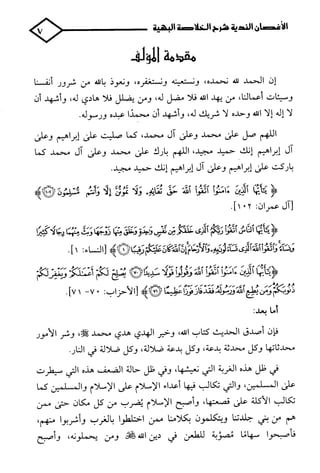 الأغصان الندية شرح الخلاصة البهية
٧
مقدمة المؤلف
إن الحمد لله نحمده، ونستعينه ونستغفره، ونعوذ بالله من شرور أنفسنا
وسيئات أعمالنا، من يهد الله فلا مضل له، ومن يضلل فلا هادي له، وأشهد أن
لا إله إلا الله وحده لا شريك له، وأشهد أن محمدًا عبده ورسوله.
اللهم صل على محمد وعلى آل محمد، كما صليت على إبراهيم وعلى
آل إبراهيم إنك حميد مجيد، اللهم بارك على محمد وعلى آل محمد كما
باركت على إبراهيم وعلى آل إبراهيم إنك حميد مجيد.
﴿ يَٰٓأَيُّهَا ٱلَّذِينَ ءَامَنُوا۟ ٱتَّقُوا۟ ٱللَّهَ حَقَّ تُقَاتِهِۦ وَلَا تَمُوتُنَّ إِلَّا وَأَنتُم مُّسْلِمُونَ ﴿١٠٢﴾ ﴾
[آل عمران: ١٠٢].
﴿ يَٰٓأَيُّهَا ٱلنَّاسُ ٱتَّقُوا۟ رَبَّكُمُ ٱلَّذِى خَلَقَكُم مِّن نَّفْسٍ وَٰحِدَةٍ وَخَلَقَ مِنْهَا زَوْجَهَا وَبَثَّ مِنْهُمَا رِجَالًا كَثِيرًا
وَنِسَآءً وَٱتَّقُوا۟ ٱللَّهَ ٱلَّذِى تَسَآءَلُونَ بِهِۦ وَٱلْأَرْحَامَ إِنَّ ٱللَّهَ كَانَ عَلَيْكُمْ رَقِيبًا ﴿١﴾ ﴾ [النساء: ١].
﴿ يَٰٓأَيُّهَا ٱلَّذِينَ ءَامَنُوا۟ ٱتَّقُوا۟ ٱللَّهَ وَقُولُوا۟ قَوْلًا سَدِيدًا ﴿٧٠﴾ يُصْلِحْ لَكُمْ أَعْمَٰلَكُمْ وَيَغْفِرْ لَكُمْ
ذُنُوبَكُمْ وَمَن يُطِعِ ٱللَّهَ وَرَسُولَهُۥ فَقَدْ فَازَ فَوْزًا عَظِيمًا ﴿٧١﴾ ﴾ [الأحزاب: ٧٠- ٧١].
أما بعد:
فإن أصدق الحديث كتاب الله، وخير الهدي هدي محمد ﷺ، وشر الأمور
محدثاتها وكل محدثة بدعة، وكل بدعة ضلالة، وكل ضلالة في النار.
في ظل هذه الغربة التي نعيشها، وفي ظل حالة الضعف هذه التي سيطرت
على المسلمين، والتي تكالب فيها أعداء الإسلام على الإسلام والمسلمين كما
تكالب الأكلة على قصعتها، وأصبح الإسلام يُضرب من كل مكان حتى ممن
هم من بني جلدتنا ويتكلمون بكلامنا ممن اختلطوا بالغرب وأشربوا منهم،
فأصبحوا سهامًا مُصوَّبة للطعن في دين الله ﷻ ومن يحملونه، وأصبح